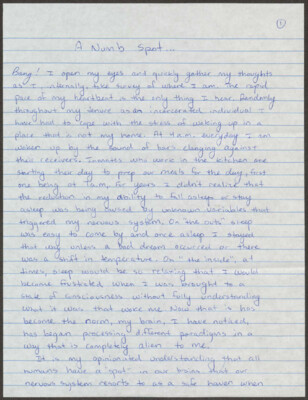 1
A Numb Spot...
Bang! I open my eyes and quickly gather my thoughts
as I, internally, take survey of where I am. The rapid
pace of my heartbeat is the only thing I hear. Randomly
throughout my tenure as an incarcerated individual I
have had to cope with the stress of waking up in a
place that is not my home. At 4 a.m. everyday I am
woken up by the sound of bars clanging against
their receivers. Inmates who work in the kitchen are
starting their day to prep our meals for the day, first
one being at 7 a.m. For years I didn't realize that
the reduction in my ability to fall asleep or stay
asleep was being caused by unknown variables that
triggered my nervous system. On "the outs" sleep
was easy to come by and once asleep I stayed
that way unless a bad dream occurred or there
was a shift in temperature. On "the inside", at
times, sleep would be so relaxing that I would
become frustrated when I was brought to a
state of consciousness without fully understanding
what it was that woke me. Now that is has
become the norm, my brain, I have noticed,
has began processing different paradigms in a
way that is completely alien to me.
It is my opinionated understanding that all
humans have a "spot" in our brains that our
nervous system resorts to as a safe haven when